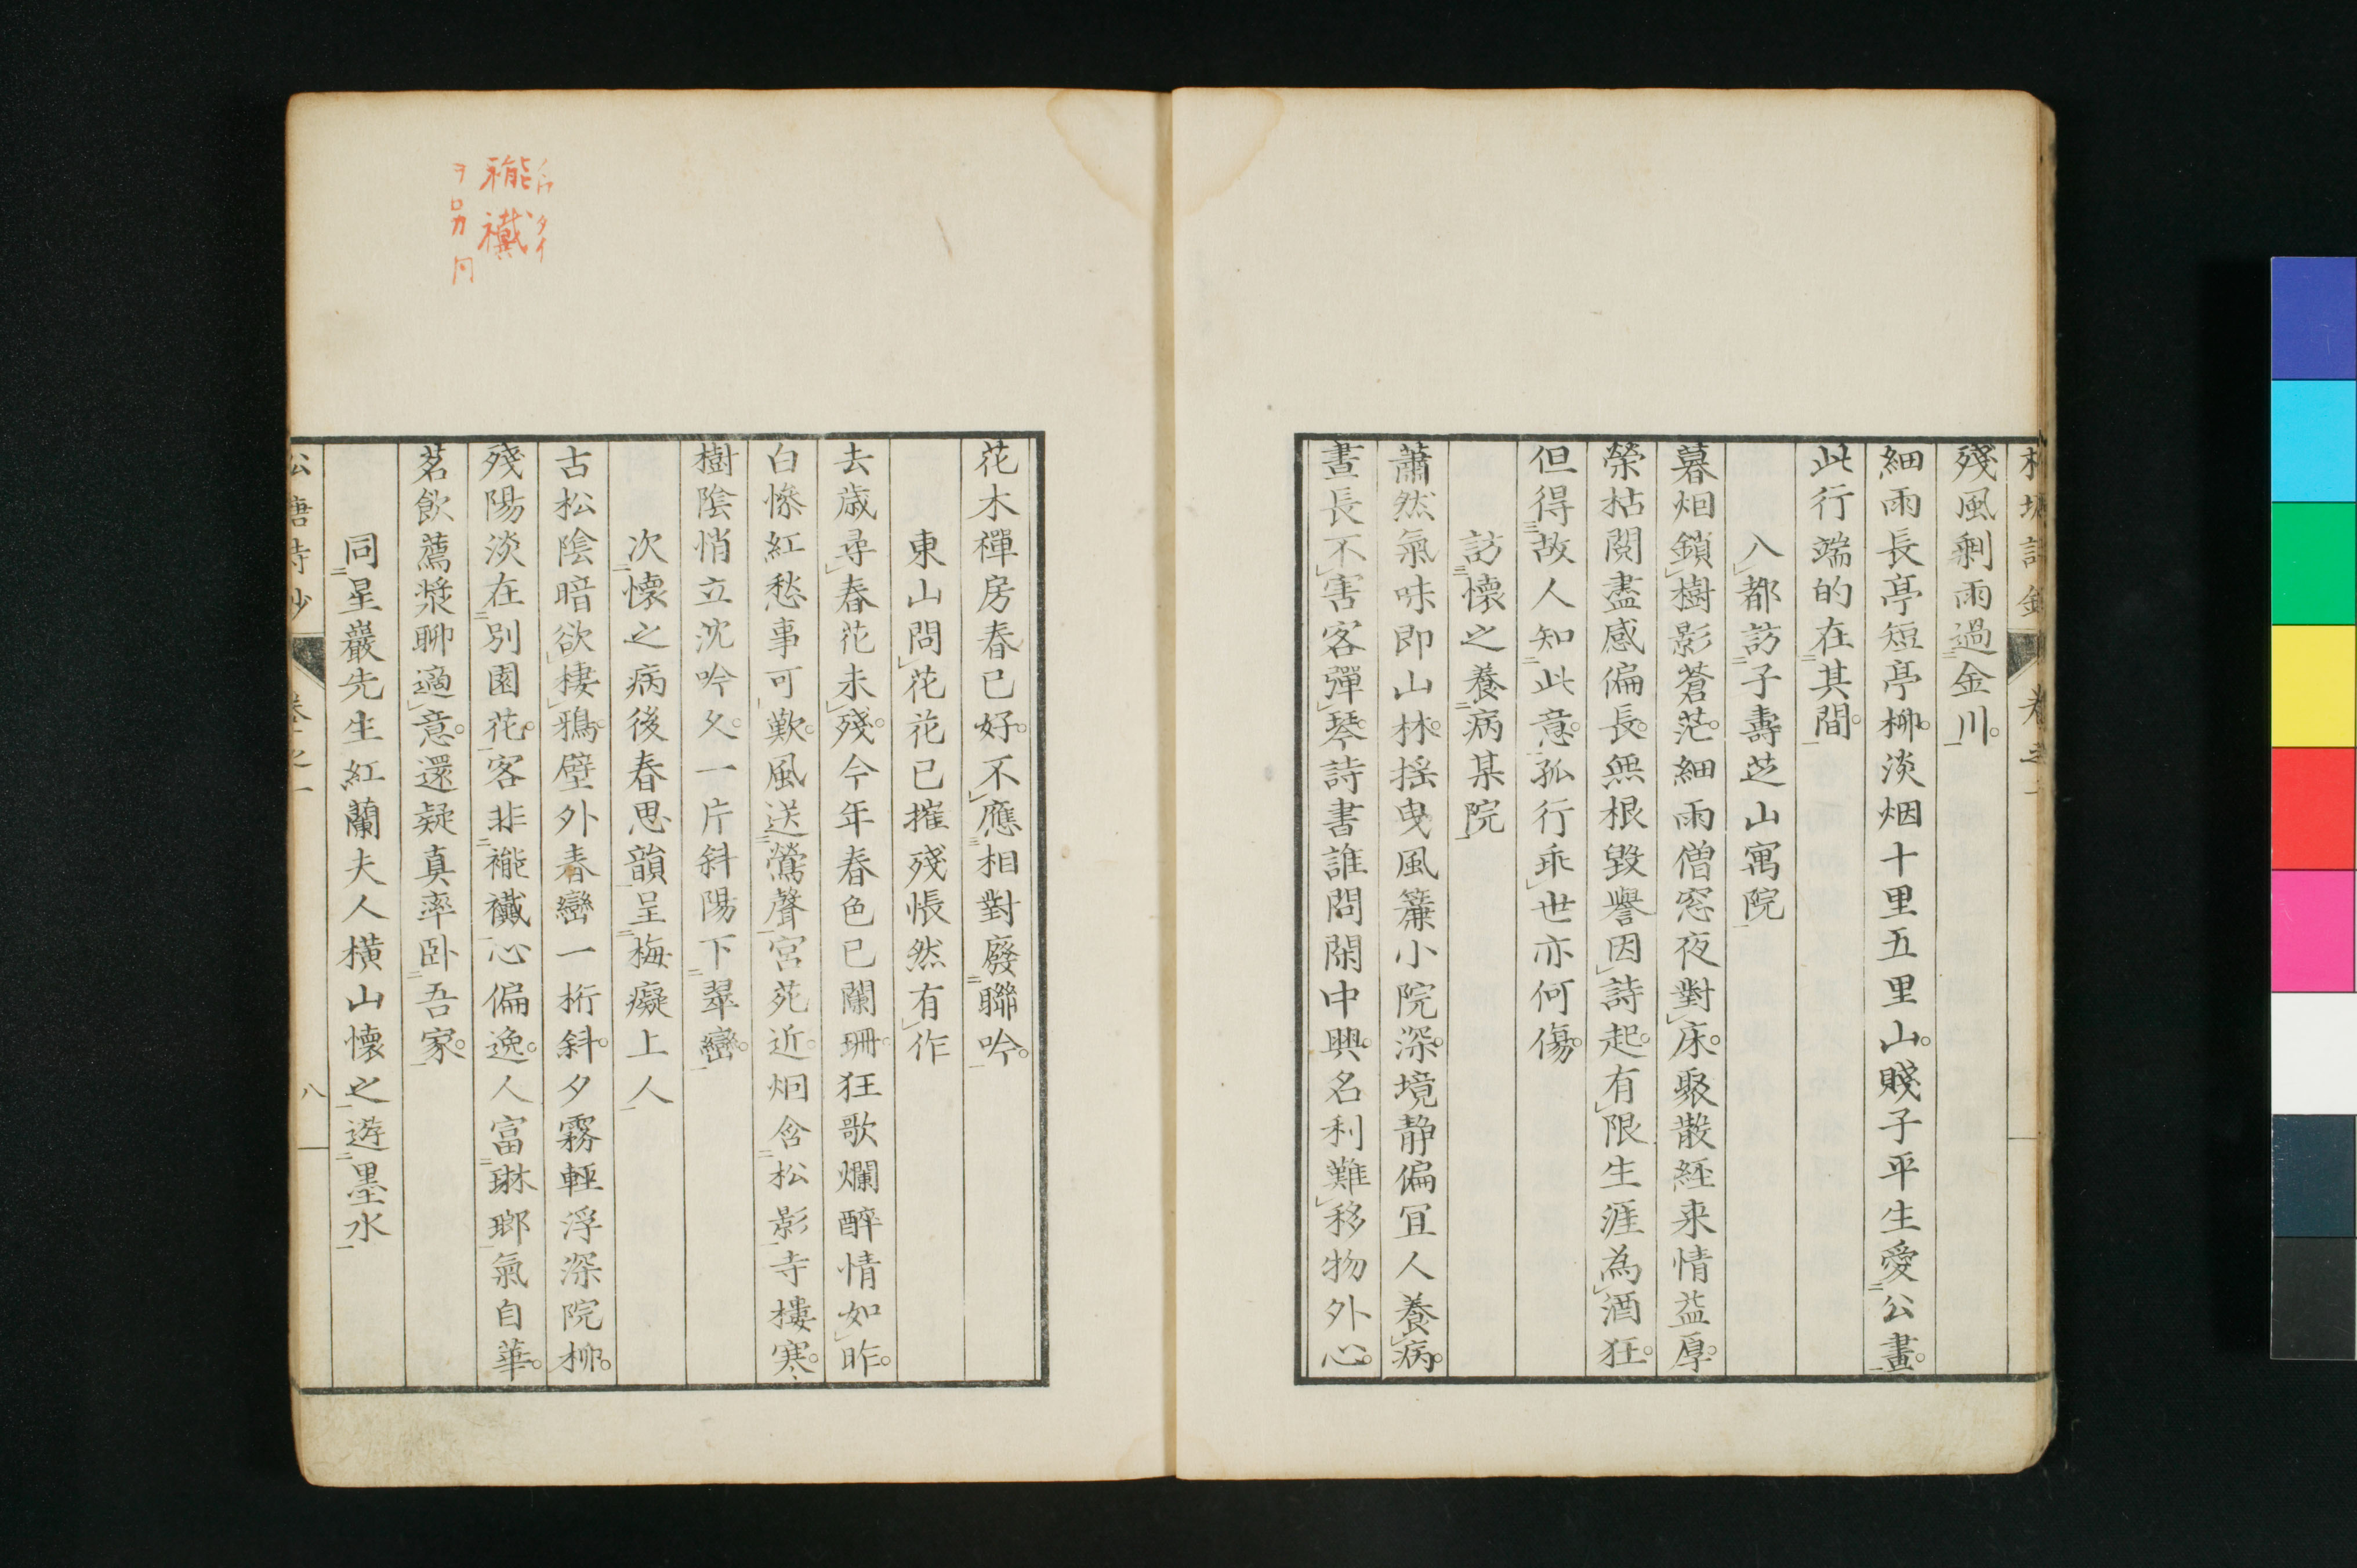 殘風剩雨過金川
細雨長亭短亭柳淡烟十里五里山賤子平生愛公畫
此行端的在其間
入都訪子壽芝山寓院
暮烟鎖樹影蒼茫細雨僧窓夜對床聚散經来情益厚
榮枯閱盡感偏長無根毀譽因詩起有限生涯為酒狂
但得故人知此意孤行乖世亦何傷
訪懷之養病某院
蕭然氣味即山林搖曳風簾小院深境静偏宜人養病
晝長不害客彈琴詩書誰問閑中興名利難移物外心
花木禪房春已好不應相對廢聯吟
東山問花花已摧殘悵然有作
去歳尋春花未殘今年春色已闌珊狂歌爛醉情如昨
白慘紅愁事可歎風送鶯聲宮苑近烟含松影寺樓寒
樹陰悄立沈吟久一片斜陽下翠巒
次懷之病後春思韻呈梅癡上人
古松陰暗欲棲鴉壁外春巒一桁斜夕霧輕浮深院柳
殘陽淡在別園花客非褦襶心偏逸人富琳瑯氣自華
茗飲薦漿聊適意還疑真率卧吾家
同星巖先生紅蘭夫人橫山懷之遊墨水
八
褦襶
タイ